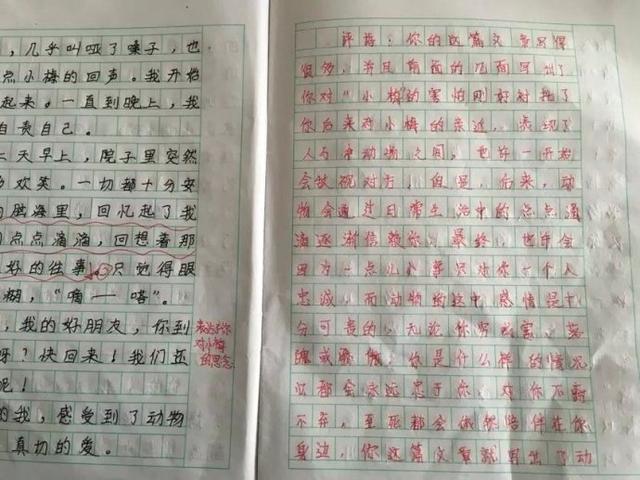 ，几乎叫哑了嗓子，也
点小梅的回声。我开始
起来。一直到晚上，我
自责自己。
二天早上，院子里突然
欢笑。一切都十分安
脑海里，回忆起了我
点点滴滴，回想着那
好的往事。只觉得眼
糊，“嘀一嗒”。
，我的好朋友，你到
呀？快回来！我们还
呢！
的我，感受到了动物
真切的爱。
表达了你
对小梅
的思念
评语：你的这篇文章写得
很多，并且前面的几面写出了
你对“小梅”的害怕刚好衬托了
你后来对小梅的亲近，表现了
人与动物之间，也许一开始
会敌视对方，但是，后来，动
物会通过日常生活中的点点滴
滴逐渐信赖你，最终，也许会
因为一点儿小事只对你一个人
忠诚，而动物的这种感情是十
分可贵的，无论你贫或富，落
魄或骄傲，你是什么样的情况
这都会永远忠于你，对你不离
不弃，至死都会诚然陪伴在你
身边，你这篇文章就写出了动